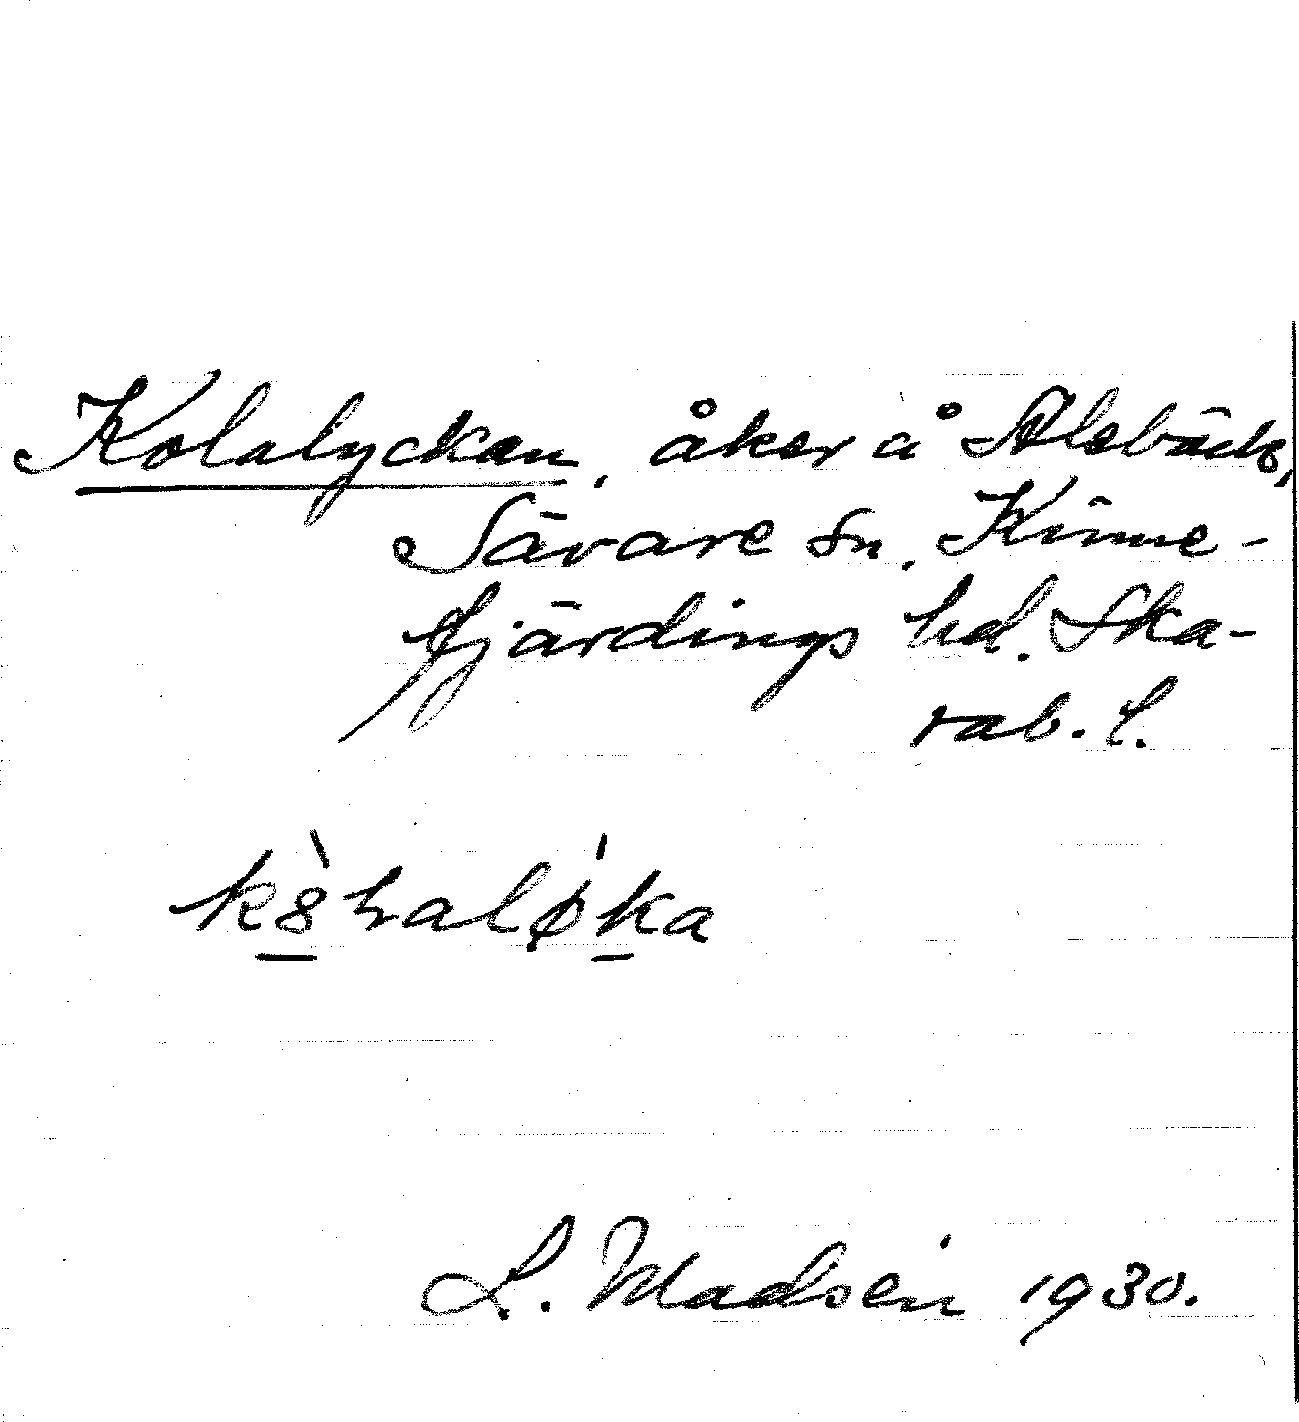 Kolalyckan, åker å Alebäck,
Sävare sn. Kinne-
fjärdings hd. Ska-
rab. l.
L. Madsen 1930.